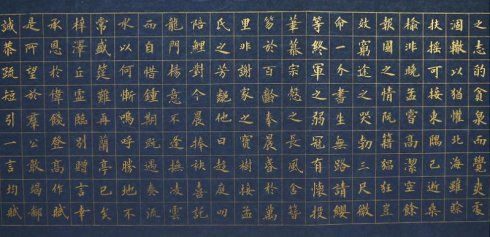 之志酌貪泉而覺爽處
涸轍以猶懽北海雖賒
扶搖可接東隅已逝桑
榆非晚孟嘗高潔空餘
報國之情阮籍猖狂豈
效窮途之哭勃三尺微
命一介書生無路請纓
等終軍之弱冠有懷投
筆慕宗慤之長風舍簪
笏於百齡奉晨昏於萬
里非謝家之寶樹接孟
氏之芳鄰他日趨庭叨
陪鯉對今晨捧袂喜託
龍門楊意不逢撫凌雲
而自惜鍾期既遇奏流
水以何慚嗚呼勝地不
常盛筵難再蘭亭已矣
梓澤丘墟臨別贈言幸
承恩於偉餞登高作賦
是所望於羣公敢竭鄙
誠恭疏短引一言均賦